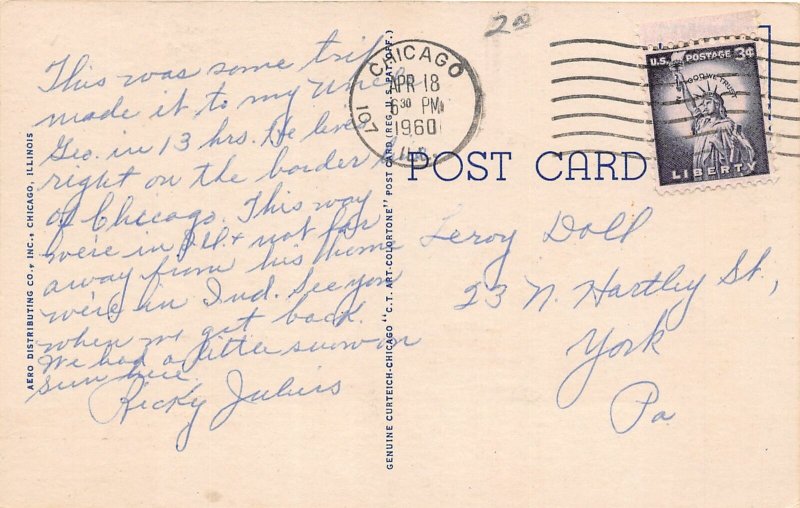 This was some trip
made it to my Uncle
Geo. in 13 hrs. He lives
right on the border line
of Chicago. This way
we're in Ill + not far
away from his home
we're in Ind. See you
when we get back.
We had a little snow in
sun here
Ricky Julius
AERO DISTRIBUTING CO., INC., CHICAGO, ILLINOIS
GENUINE CURTEICH-CHICAGO "C.T. ART-COLORTONE" POST CARD (REG. U.S. PAT. OFF.)
2.00
CHICAGO
APR 18
6 30 PM
1960
ILL.
107
U.S. POSTAGE 3¢
IN GOD WE TRUST
LIBERTY
POST CARD
Leroy Doll
23 N. Hartley St,
York
Pa